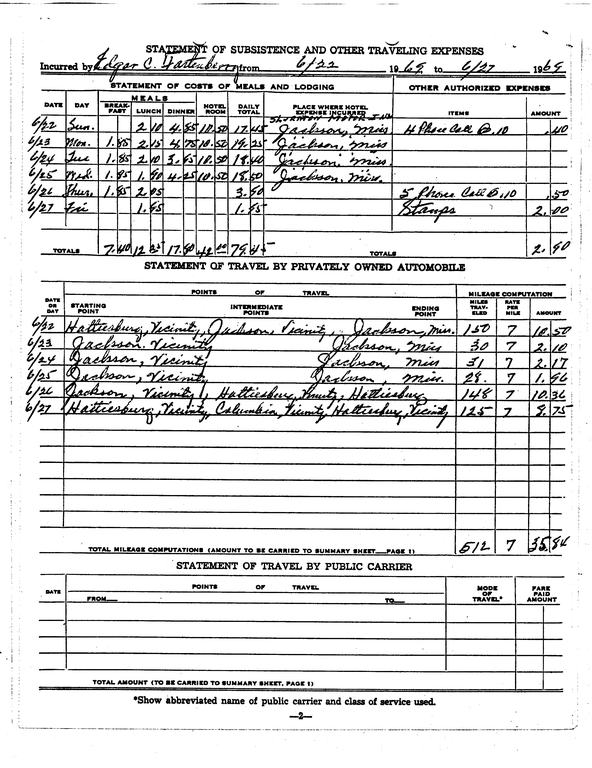 STATEMENT OF SUBSISTENCE AND OTHER TRAVELING EXPENSES
Incurred by Edgar C. from 6/22 1969 to 6/27 1969
STATEMENT OF COSTS OF MEALS AND LODGING OTHER AUTHORIZED EXPENSES
MEALS
DATE DAY BREAK-FAST LUNCH DINNER HOTEL ROOM DAILY TOTAL PLACE WHERE HOTEL EXPENSE INCURRED ITEMS AMOUNT
6/22 Sun. 2 10 4.85 10.50 17.45 Jackson, Miss 4 Phone Call @ .10 .40
6/23 Mon. 1.85 2.15 4.75 10.50 19.25 Jackson, Miss
6/24 Tue 1.85 2 10 3.95 10.50 18.40 Jackson, Miss.
6/25 Wed. 1.85 1.90 4.25 10.50 18.50 Jackson, Miss.
6/26 Thur. 1.85 2 05 3.90 5 Phone Call @ .10 .50
6/27 Fri 1.95 1.95 Stamps 2.00
TOTALS 7.40 12 25 17.80 42.00 79.45 TOTALS 2.90
STATEMENT OF TRAVEL BY PRIVATELY OWNED AUTOMOBILE
POINTS OF TRAVEL MILEAGE COMPUTATION
DATE OR DAY STARTING POINT INTERMEDIATE POINTS ENDING POINT MILES TRAV-ELED RATE PER MILE AMOUNT
6/22 Hattiesburg, Vicinity, Jackson, Vicinity, Jackson, Miss. 150 7 10.50
6/23 Jackson, Vicinity Jackson, Miss 30 7 2.10
6/24 Jackson, Vicinity Jackson, Miss 31 7 2.17
6/25 Jackson, Vicinity Jackson, Miss. 28 7 1.96
6/26 Jackson, Vicinity, Hattiesburg, Vicinity, Hattiesburg 148 7 10.36
6/27 Hattiesburg, Vicinity, Columbia, Vicinity, Hattiesburg, Vicinity 125 7 8.75
TOTAL MILEAGE COMPUTATIONS (AMOUNT TO BE CARRIED TO SUMMARY SHEET—PAGE 1) 512 7 35.84
STATEMENT OF TRAVEL BY PUBLIC CARRIER
DATE POINTS OF TRAVEL MODE OF TRAVEL* FARE PAID AMOUNT
FROM— TO—
TOTAL AMOUNT (TO BE CARRIED TO SUMMARY SHEET, PAGE 1)
*Show abbreviated name of public carrier and class of service used.
—2—